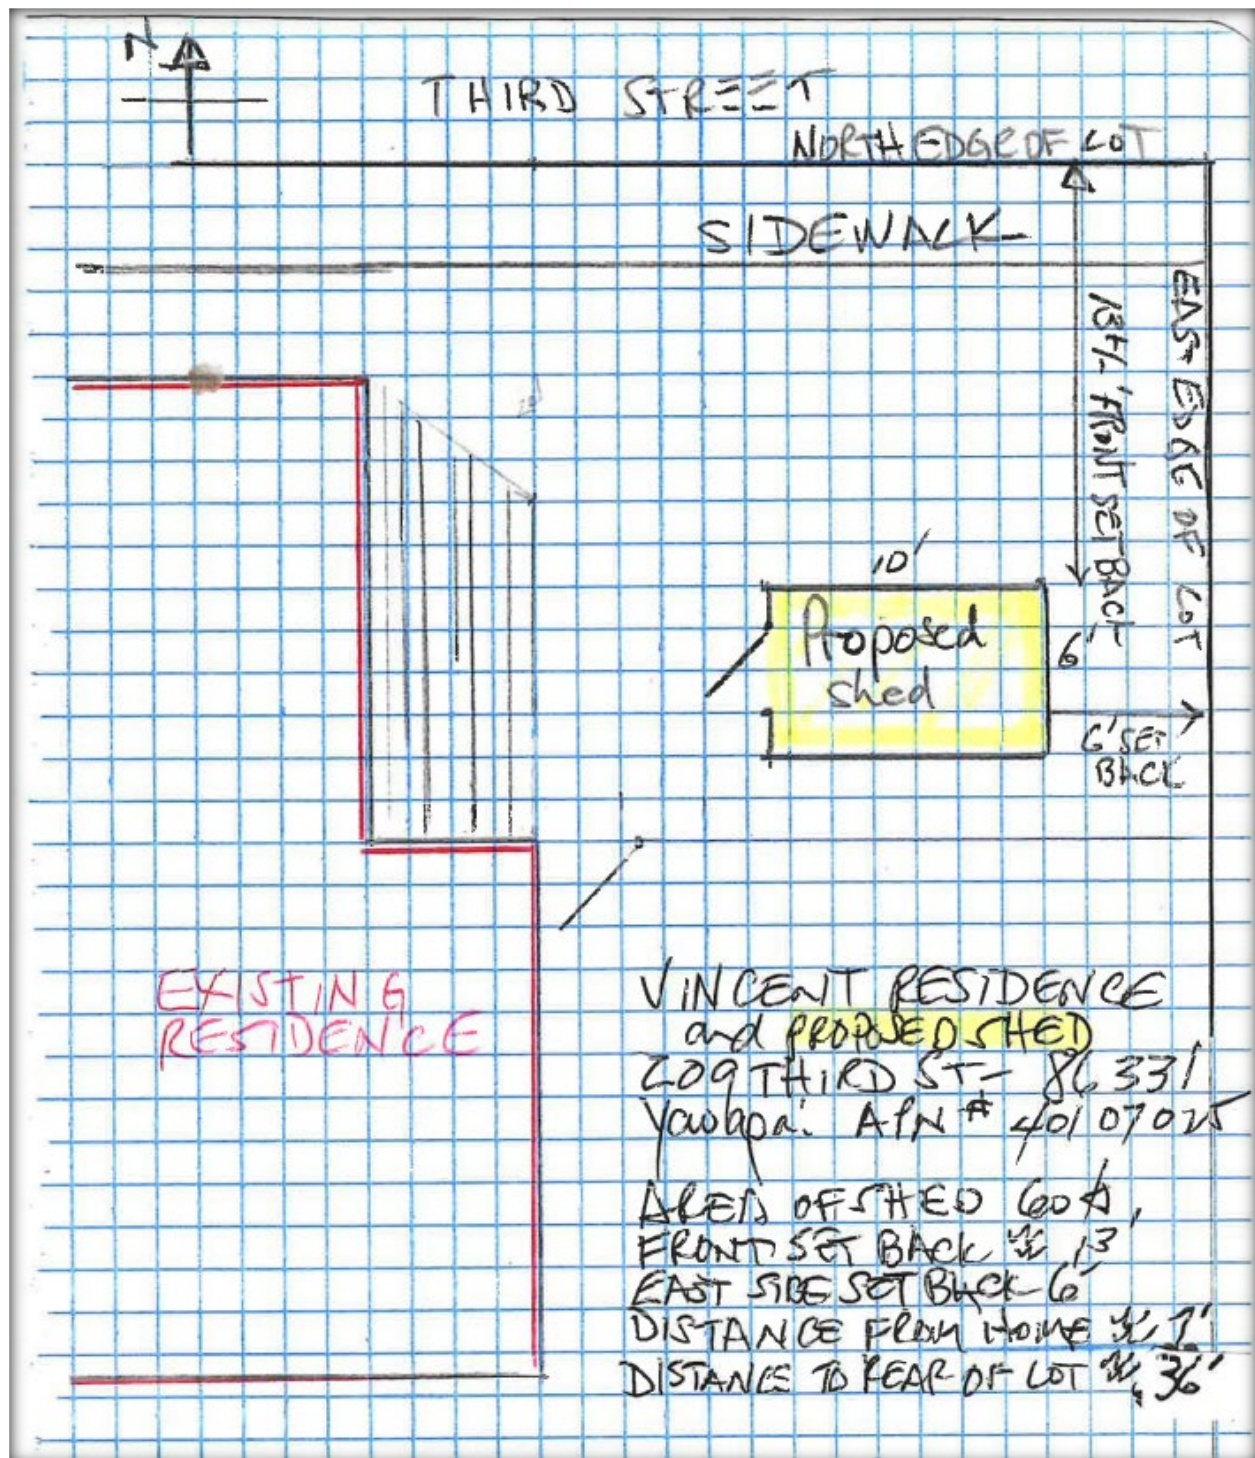 N
THIRD STREET
NORTH EDGE OF LOT
SIDEWALK
EAST EDGE OF LOT
13+/-' FRONT SET BACK
10'
Proposed
shed
6'
6' SET
BACK
EXISTING
RESIDENCE
VINCENT RESIDENCE
and PROPOSED SHED
209 THIRD ST - 86331
Yavapai APN # 40107025
AREA OF SHED 60
FRONT SET BACK 13'
EAST SIDE SET BACK 6'
DISTANCE FROM HOME 7'
DISTANCE TO REAR OF LOT 36'